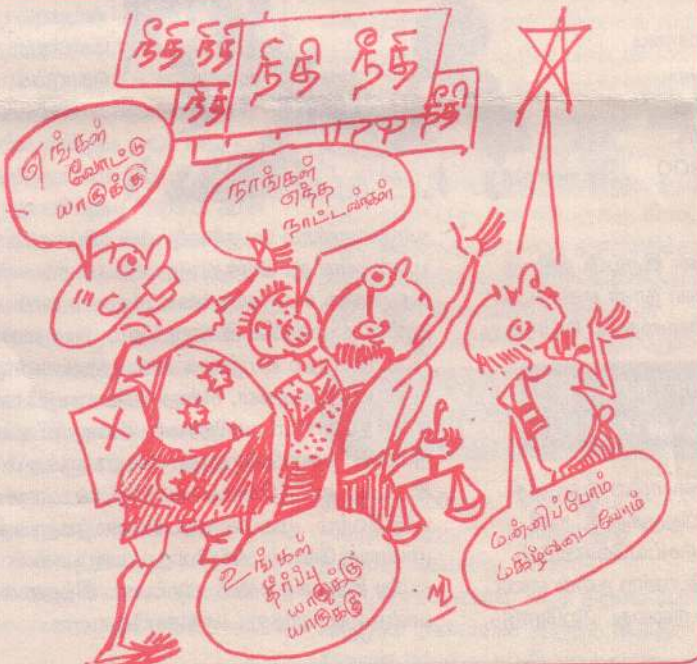 நீதி நீதி
நீதி நீதி
நீதி
நீதி
எங்கள்
வோட்டு
யாருக்கு
நாங்கள்
எந்த
நாட்டவர்கள்
உங்கள்
தீர்ப்பு
யாருக்கு
யாருக்கு
மன்னிப்போம்
மகிழ்வடைவோம்